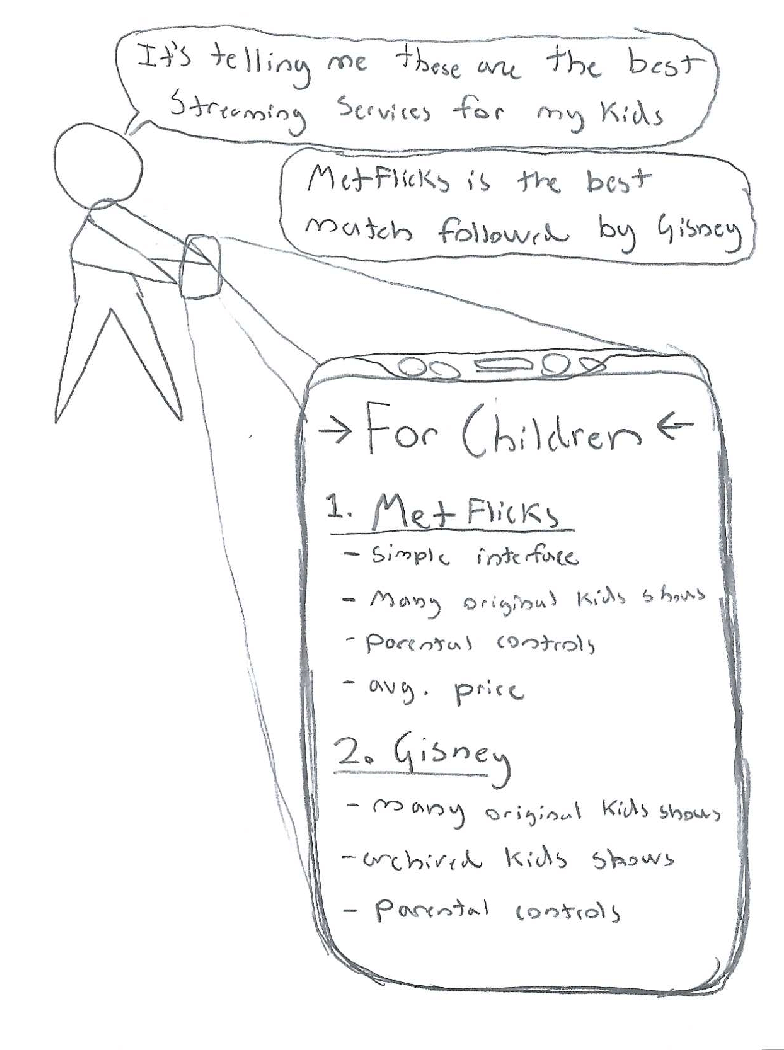 It's telling me these are the best
Streaming Services for my Kids
MetFlicks is the best
match followed by Gisney
→ For Children ←
1. MetFlicks
- Simple interface
- Many original Kids shows
- Parental controls
- avg. price
2. Gisney
- many original Kids shows
- archived Kids shows
- Parental controls